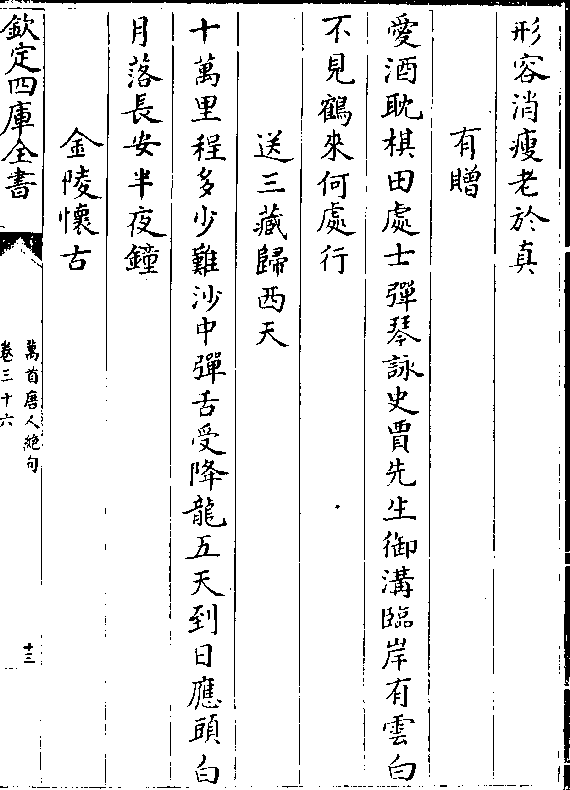 形容消瘦老於真
有贈
愛酒耽棋田處士彈琴詠史賈先生御溝臨岸有雲白
不見鶴來何處行
送三藏歸西天
十萬里程多少難沙中彈舌受降龍五天到日應頭白
月落長安半夜鐘
金陵懷古
欽定四庫全書
萬首唐人絶句
卷三十六
十三